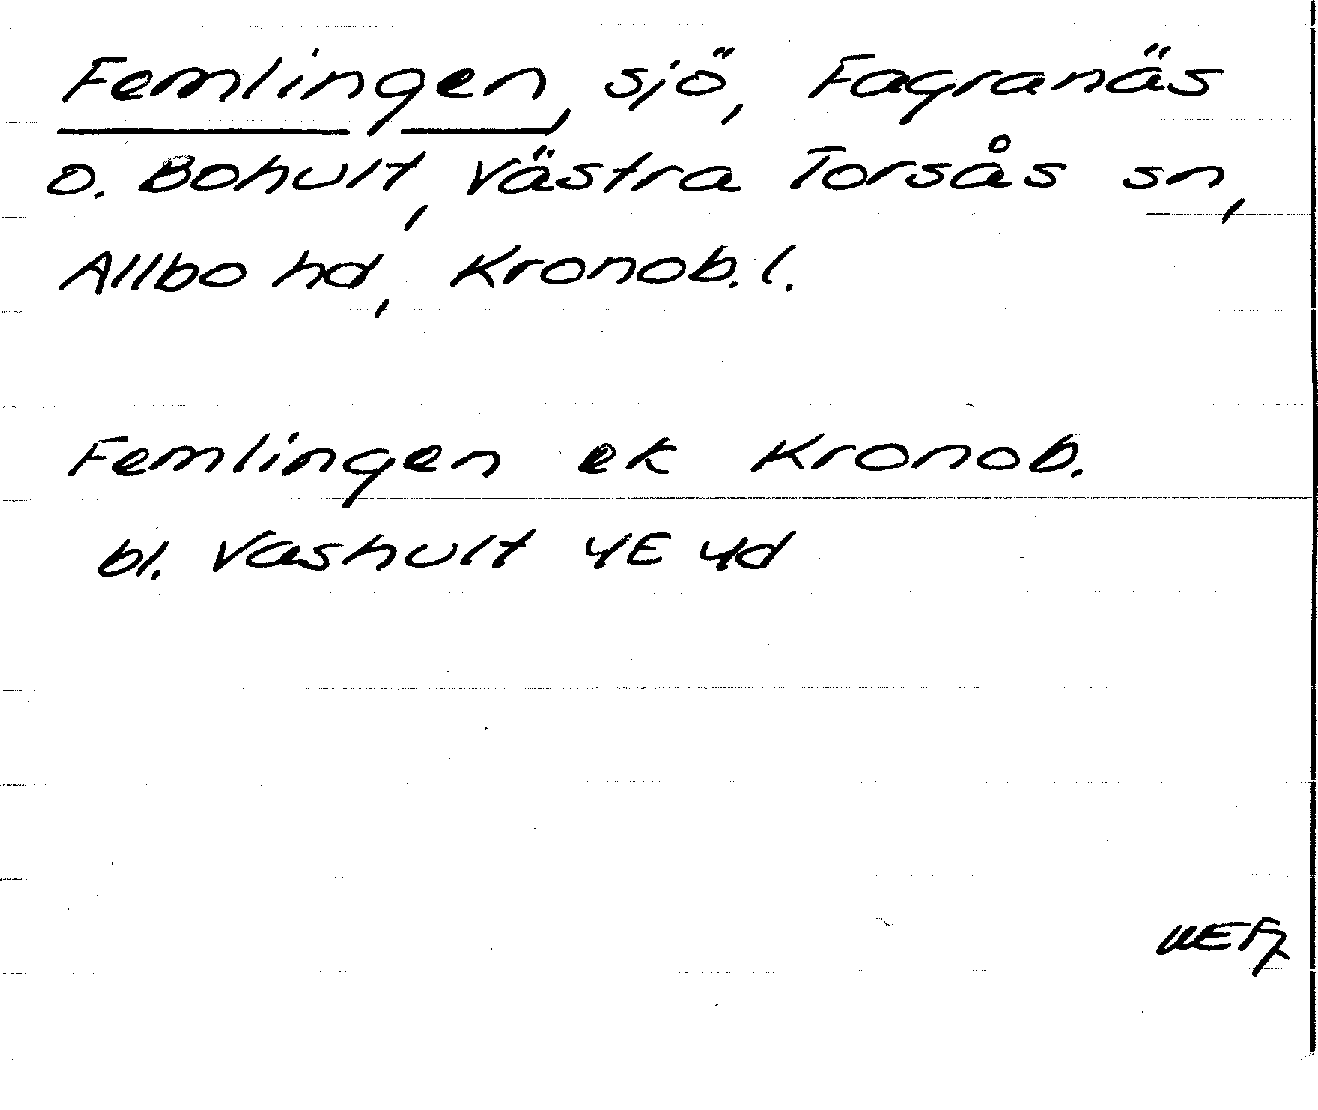 Femlingen, sjö, Fagranäs
o. Bohult, Västra Torsås sn,
Allbo hd, Kronob. l.
Femlingen ek Kronob.
bl. Vashult 4E 4d